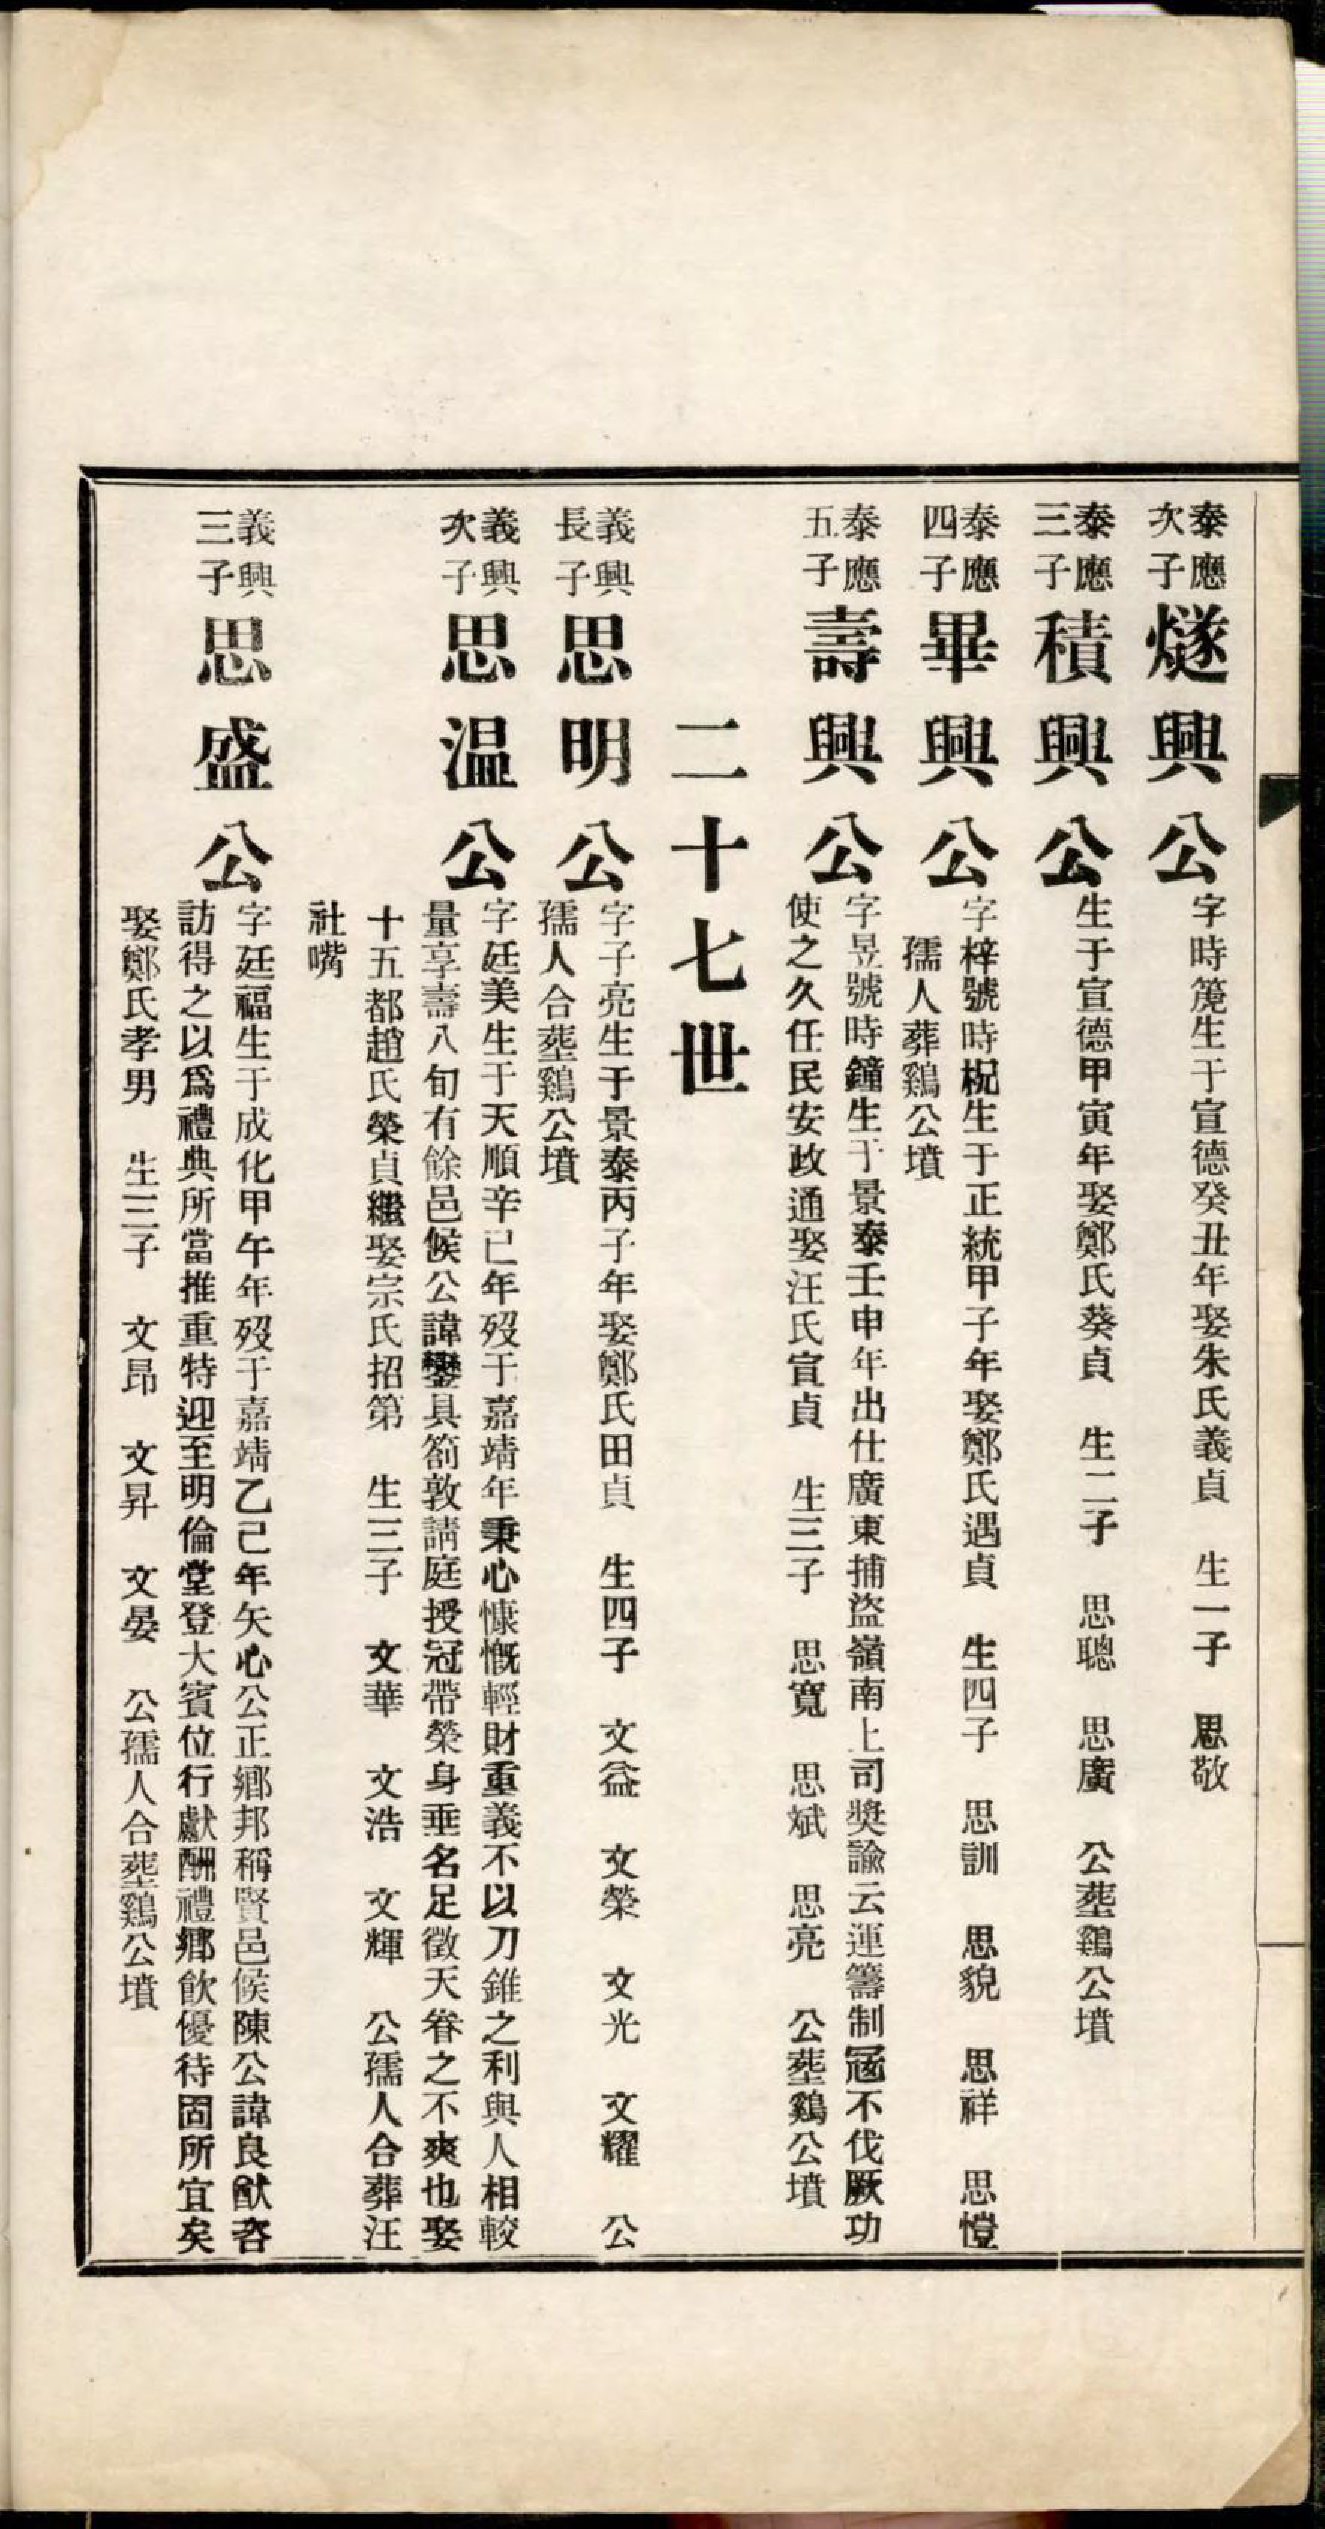 泰應次子燧興公字時篼生于宣德癸丑年娶朱氏義貞 生一子 思敬
泰應三子積興公生于宣德甲寅年娶鄭氏葵貞 生二子 思聰 思廣 公塟鷄公墳
泰應四子畢興公字梓號時柷生于正統甲子年娶鄭氏遇貞 生四子 思訓 思貌 思祥 思愷
孺人葬鷄公墳
泰應五子壽興公字昱號時鐘生于景泰壬申年出仕廣東捕盜嶺南上司獎諭云運籌制寇不伐厥功
使之久任民安政通娶汪氏宜貞 生三子 思寬 思斌 思亮 公塟鷄公墳
二十七世
義興長子思明公字子亮生于景泰丙子年娶鄭氏田貞 生四子 文益 文榮 文光 文耀 公
孺人合塟鷄公墳
義興次子思温公字廷美生于天順辛已年歿于嘉靖年秉心慷慨輕財重義不以刀錐之利與人相較
量享壽八旬有餘邑候公諱鑾具劄敦請庭授冠帶榮身垂名足徵天眷之不爽也娶
十五都趙氏榮貞繼娶宗氏招第 生三子 文華 文浩 文輝 公孺人合葬汪
社嘴
義興三子思盛公字廷福生于成化甲午年歿于嘉靖乙己年矢心公正鄉邦稱賢邑候陳公諱良猷咨
訪得之以爲禮典所當推重特迎至明倫堂登大賓位行獻酬禮鄉飲優待固所宜矣
娶鄭氏孝男 生三子 文昂 文昇 文晏 公孺人合塟鷄公墳